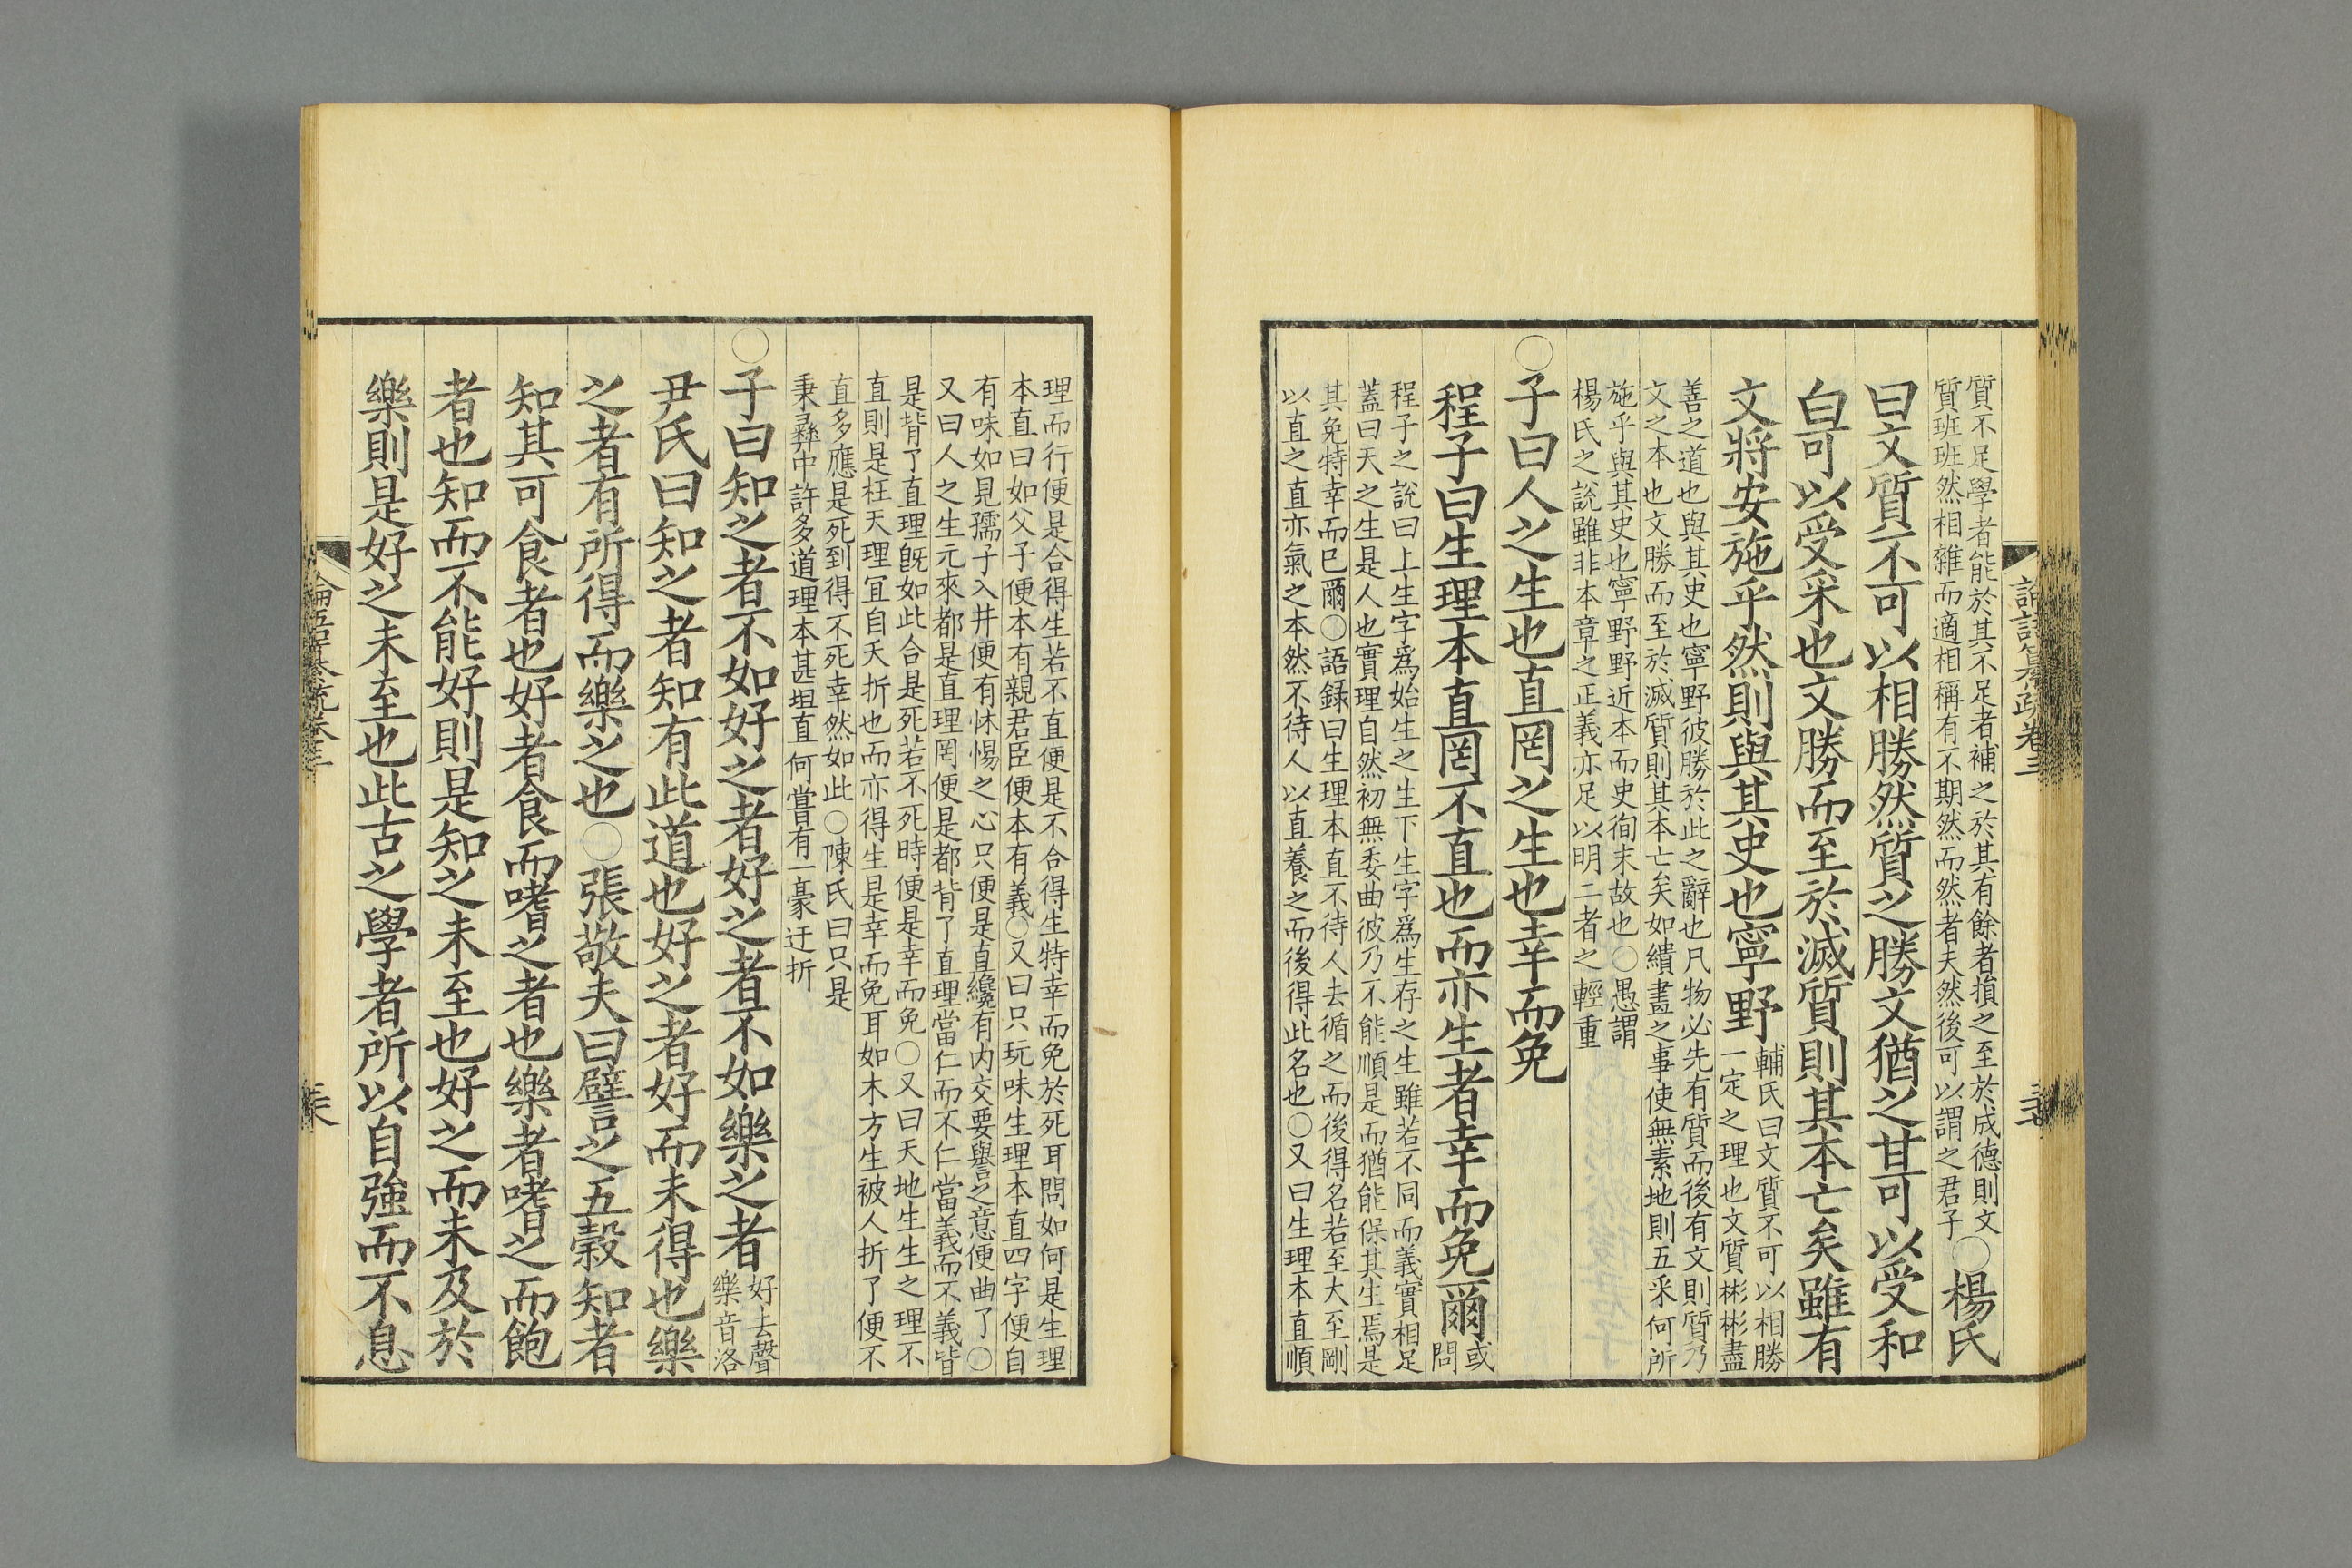 質不足學者能於其不足者補之於其有餘者損之至於成德則文
質班班然相雜而適相稱有不期然而然者夫然後可以謂之君子
○楊氏
曰文質不可以相勝然質之勝文猶之甘可以受和
白可以受采也文勝而至於滅質則其本亡矣雖有
文將安施乎然則與其史也寧野
輔氏曰文質不可以相勝
一定之理也文質彬彬盡
善之道也與其史也寧野彼勝於此之辭也凡物必先有質而後有文則質乃
文之本也文勝而至於滅質則其本亡矣如繢畫之事使無素地則五采何所
施乎與其史也寧野野近本而史徇末故也○愚謂
楊氏之說雖非本章之正義亦足以明二者之輕重
○子曰人之生也直罔之生也幸而免
程子曰生理本直罔不直也而亦生者幸而免爾
或
問
程子之說曰上生字爲始生之生下生字爲生存之生雖若不同而義實相足
蓋曰天之生是人也實理自然初無委曲彼乃不能順是而猶能保其生焉是
其免特幸而已爾○語録曰生理本直不待人去循之而後得名若至大至剛
以直之直亦氣之本然不待人以直養之而後得此名也○又曰生理本直順
理而行便是合得生若不直便是不合得生特幸而免於死耳問如何是生理
本直曰如父子便本有親君臣便本有義○又曰只玩味生理本直四字便自
有味如見孺子入井便有怵惕之心只便是直纔有内交要譽之意便曲了○
又曰人之生元來都是直理罔便是都背了直理當仁而不仁當義而不義皆
是背了直理旣如此合是死若不死時便是幸而免○又曰天地生生之理不
直則是枉天理宜自夭折也而亦得生是幸而免耳如木方生被人折了便不
直多應是死到得不死幸然如此○陳氏曰只是
秉彞中許多道理本甚坦直何嘗有一豪迂折
○子曰知之者不如好之者好之者不如樂之者
好去聲
樂音洛
尹氏曰知之者知有此道也好之者好而未得也樂
之者有所得而樂之也○張敬夫曰譬之五穀知者
知其可食者也好者食而嗜之者也樂者嗜之而飽
者也知而不能好則是知之未至也好之而未及於
樂則是好之未至也此古之學者所以自強而不息